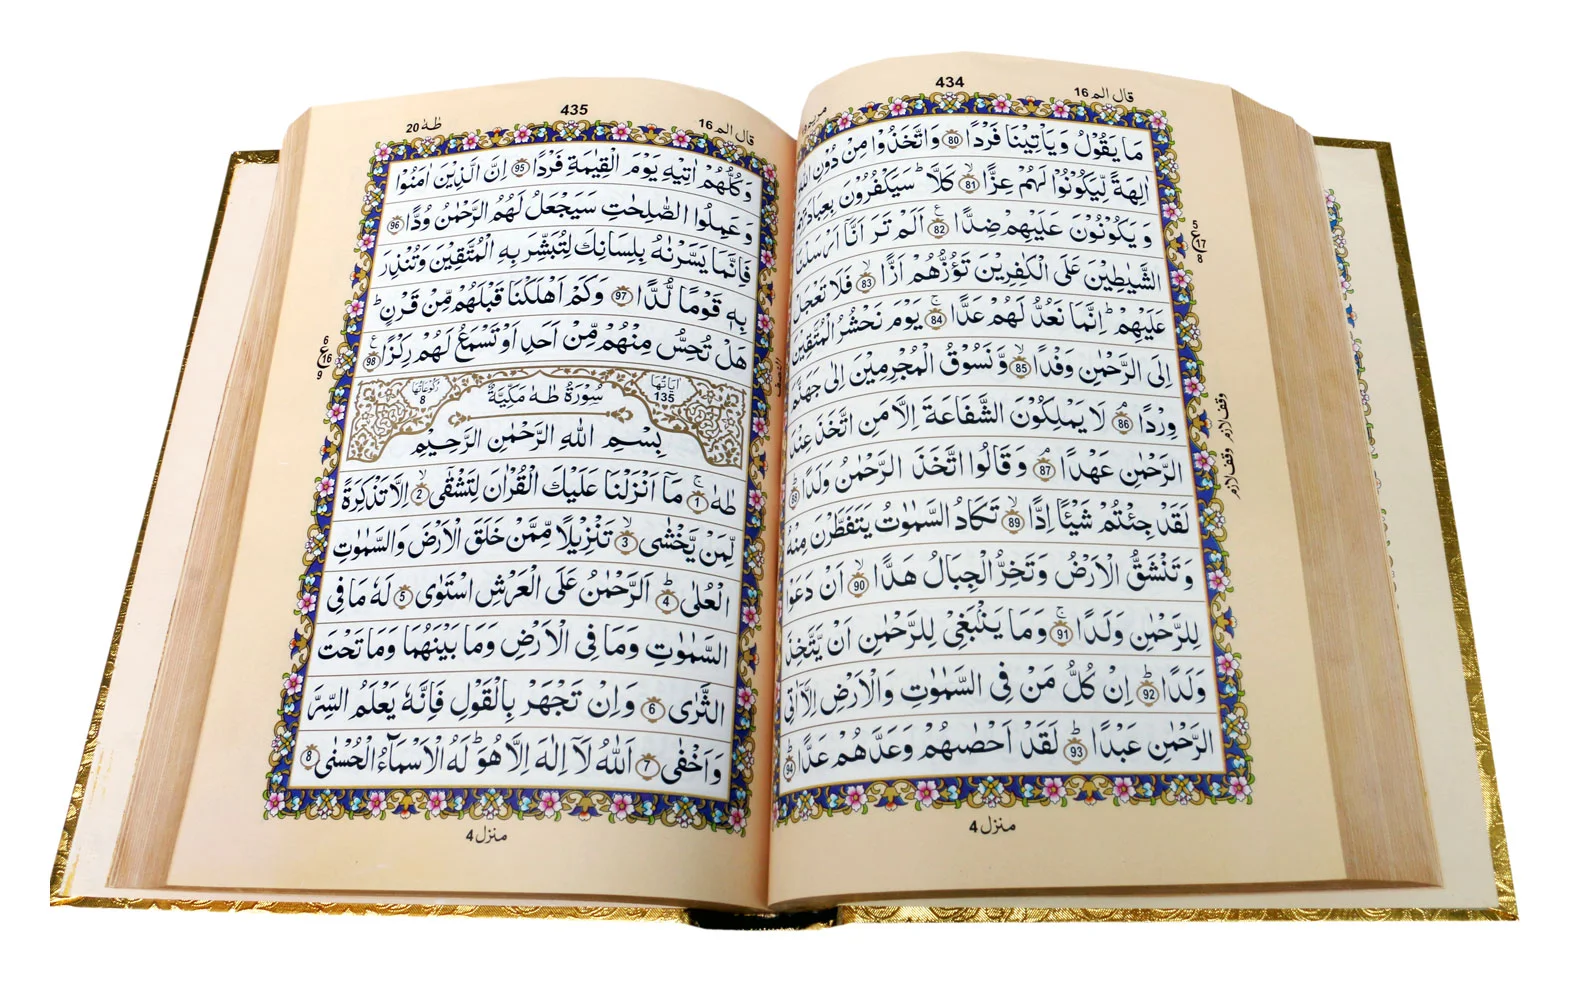 434
قال الم 16
مَا يَقُوْلُ وَيَاْتِيْنَا فَرْدًا ﴿80﴾ وَاتَّخَذُوْا مِنْ دُوْنِ اللّٰهِ
اٰلِهَةً لِّيَكُوْنُوْا لَهُمْ عِزًّا ﴿81﴾ كَلَّا ؕ سَيَكْفُرُوْنَ بِعِبَادَتِهِمْ
وَيَكُوْنُوْنَ عَلَيْهِمْ ضِدًّا ﴿82﴾ اَلَمْ تَرَ اَنَّاۤ اَرْسَلْنَا
الشَّيٰطِيْنَ عَلَى الْكٰفِرِيْنَ تَؤُزُّهُمْ اَزًّا ﴿83﴾ فَلَا تَعْجَلْ
عَلَيْهِمْ ؕ اِنَّمَا نَعُدُّ لَهُمْ عَدًّا ﴿84﴾ يَوْمَ نَحْشُرُ الْمُتَّقِيْنَ
اِلَى الرَّحْمٰنِ وَفْدًا ﴿85﴾ وَّنَسُوْقُ الْمُجْرِمِيْنَ اِلٰى جَهَنَّمَ
وِرْدًا ﴿86﴾ لَا يَمْلِكُوْنَ الشَّفَاعَةَ اِلَّا مَنِ اتَّخَذَ عِنْدَ
الرَّحْمٰنِ عَهْدًا ﴿87﴾ وَقَالُوا اتَّخَذَ الرَّحْمٰنُ وَلَدًا ﴿88﴾
لَقَدْ جِئْتُمْ شَيْئًا اِدًّا ﴿89﴾ تَكَادُ السَّمٰوٰتُ يَتَفَطَّرْنَ مِنْهُ
وَتَنْشَقُّ الْاَرْضُ وَتَخِرُّ الْجِبَالُ هَدًّا ﴿90﴾ اَنْ دَعَوْا
لِلرَّحْمٰنِ وَلَدًا ﴿91﴾ وَمَا يَنْۢبَغِيْ لِلرَّحْمٰنِ اَنْ يَّتَّخِذَ
وَلَدًا ﴿92﴾ اِنْ كُلُّ مَنْ فِى السَّمٰوٰتِ وَالْاَرْضِ اِلَّاۤ اٰتِى
الرَّحْمٰنِ عَبْدًا ﴿93﴾ لَقَدْ اَحْصٰىهُمْ وَعَدَّهُمْ عَدًّا ﴿94﴾
منزل 4
5
ع 17
8
وقف لازم
وقف لازم
435
قال الم 16
طٰهٰ 20
وَكُلُّهُمْ اٰتِيْهِ يَوْمَ الْقِيٰمَةِ فَرْدًا ﴿95﴾ اِنَّ الَّذِيْنَ اٰمَنُوْا
وَعَمِلُوا الصّٰلِحٰتِ سَيَجْعَلُ لَهُمُ الرَّحْمٰنُ وُدًّا ﴿96﴾
فَاِنَّمَا يَسَّرْنٰهُ بِلِسَانِكَ لِتُبَشِّرَ بِهِ الْمُتَّقِيْنَ وَتُنْذِرَ
بِهٖ قَوْمًا لُّدًّا ﴿97﴾ وَكَمْ اَهْلَكْنَا قَبْلَهُمْ مِّنْ قَرْنٍ ؕ
هَلْ تُحِسُّ مِنْهُمْ مِّنْ اَحَدٍ اَوْ تَسْمَعُ لَهُمْ رِكْزًا ﴿98﴾
6
ع 16
9
اٰيَاتُهَا 135
سُوْرَةُ طٰهٰ مَكِّيَّةٌ
رُكُوْعَاتُهَا 8
بِسْمِ اللّٰهِ الرَّحْمٰنِ الرَّحِيْمِ
طٰهٰ ﴿1﴾ مَاۤ اَنْزَلْنَا عَلَيْكَ الْقُرْاٰنَ لِتَشْقٰٓى ﴿2﴾ اِلَّا تَذْكِرَةً
لِّمَنْ يَّخْشٰى ﴿3﴾ تَنْزِيْلًا مِّمَّنْ خَلَقَ الْاَرْضَ وَالسَّمٰوٰتِ
الْعُلٰى ﴿4﴾ اَلرَّحْمٰنُ عَلَى الْعَرْشِ اسْتَوٰى ﴿5﴾ لَهٗ مَا فِى
السَّمٰوٰتِ وَمَا فِى الْاَرْضِ وَمَا بَيْنَهُمَا وَمَا تَحْتَ
الثَّرٰى ﴿6﴾ وَاِنْ تَجْهَرْ بِالْقَوْلِ فَاِنَّهٗ يَعْلَمُ السِّرَّ
وَاَخْفٰى ﴿7﴾ اَللّٰهُ لَاۤ اِلٰهَ اِلَّا هُوَ ؕ لَهُ الْاَسْمَآءُ الْحُسْنٰى ﴿8﴾
منزل 4